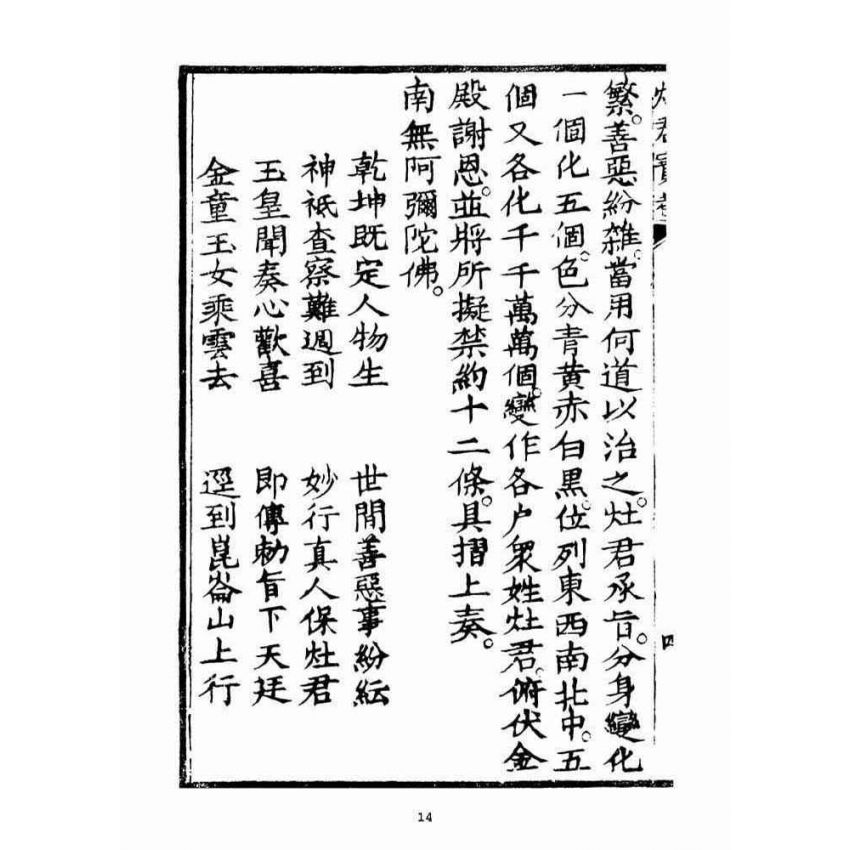 灶君寶卷
四
繁。善惡紛雜。當用何道以治之。灶君承旨。分身變化
一個化五個。色分青黃赤白黑。位列東西南北中。五
個又各化千千萬萬個。變作各户衆姓灶君。俯伏金
殿謝恩。並將所擬禁約十二條。具摺上奏。
南無阿彌陀佛。
乾坤既定人物生　世間善惡事紛紜
神祇查察難週到　妙行真人保灶君
玉皇聞奏心歡喜　即傳勅旨下天廷
金童玉女乘雲去　逕到崑崙山上行
14